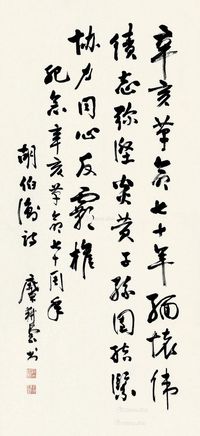 辛亥革命七十年缅怀伟
绩志弥坚炎黄子孙团结紧
协力同心反霸权
纪念辛亥革命七十周年
胡伯衡诗
糜耕云书